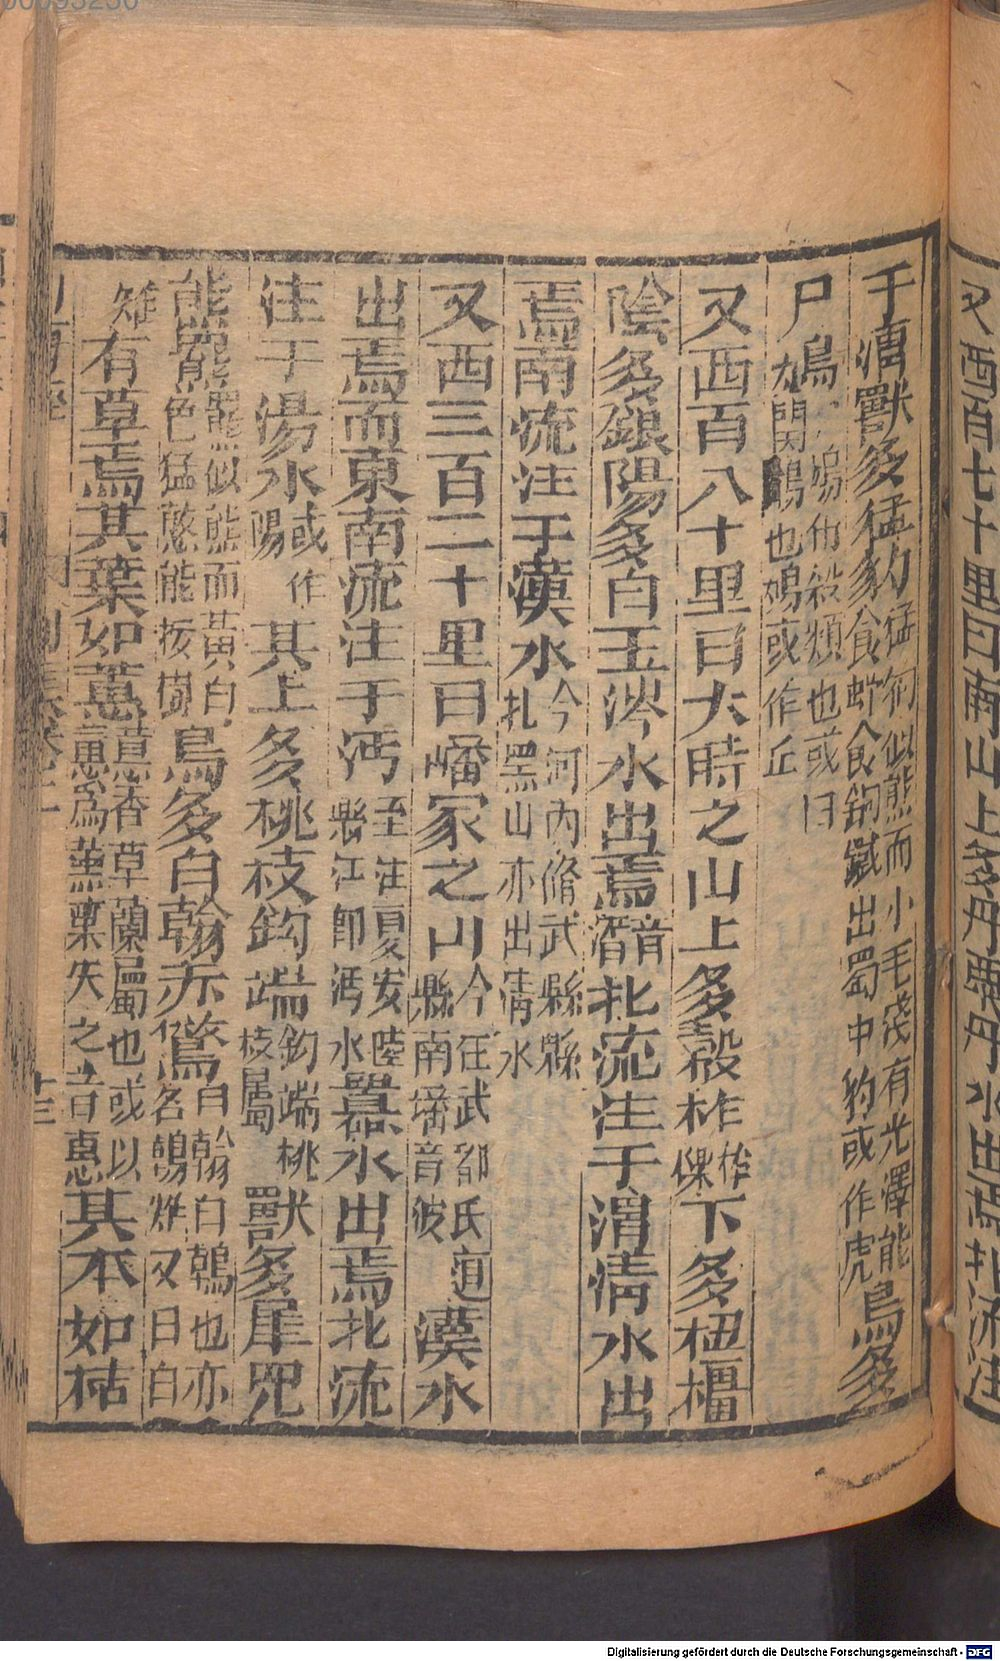 于渭獸多猛豹猛豹似熊而小毛淺有光澤能食蛇食銅鐵出蜀中豹或作虎鳥多
尸鳩尸鳩布穀類也或曰鴶也鳩或作丘
又西百八十里曰大時之山上多穀柞柞櫟下多杻橿
陰多銀陽多白玉涔水出焉音潛北流注于渭清水出
焉南流注于漢水今河內脩武縣縣北黑山亦出清水
又西三百二十里曰嶓冢之山今在武都氐道縣南嶓音波漢水
出焉而東南流注于沔至江夏安陸縣江即沔水囂水出焉北流
注于湯水或作陽其上多桃枝鉤端鉤端桃枝屬獸多犀兕
熊羆羆似熊而黃白色猛憨能拔樹鳥多白翰赤鷩白翰白鵫也亦名鶾雉又曰白
雉有草焉其葉如蕙蕙香草蘭屬也或以蕙為薰葉失之音惠其本如桔
又西百七十里曰南山上多丹粟丹水出焉北流注
Digitalisierung gefördert durch die Deutsche Forschungsgemeinschaft - DFG